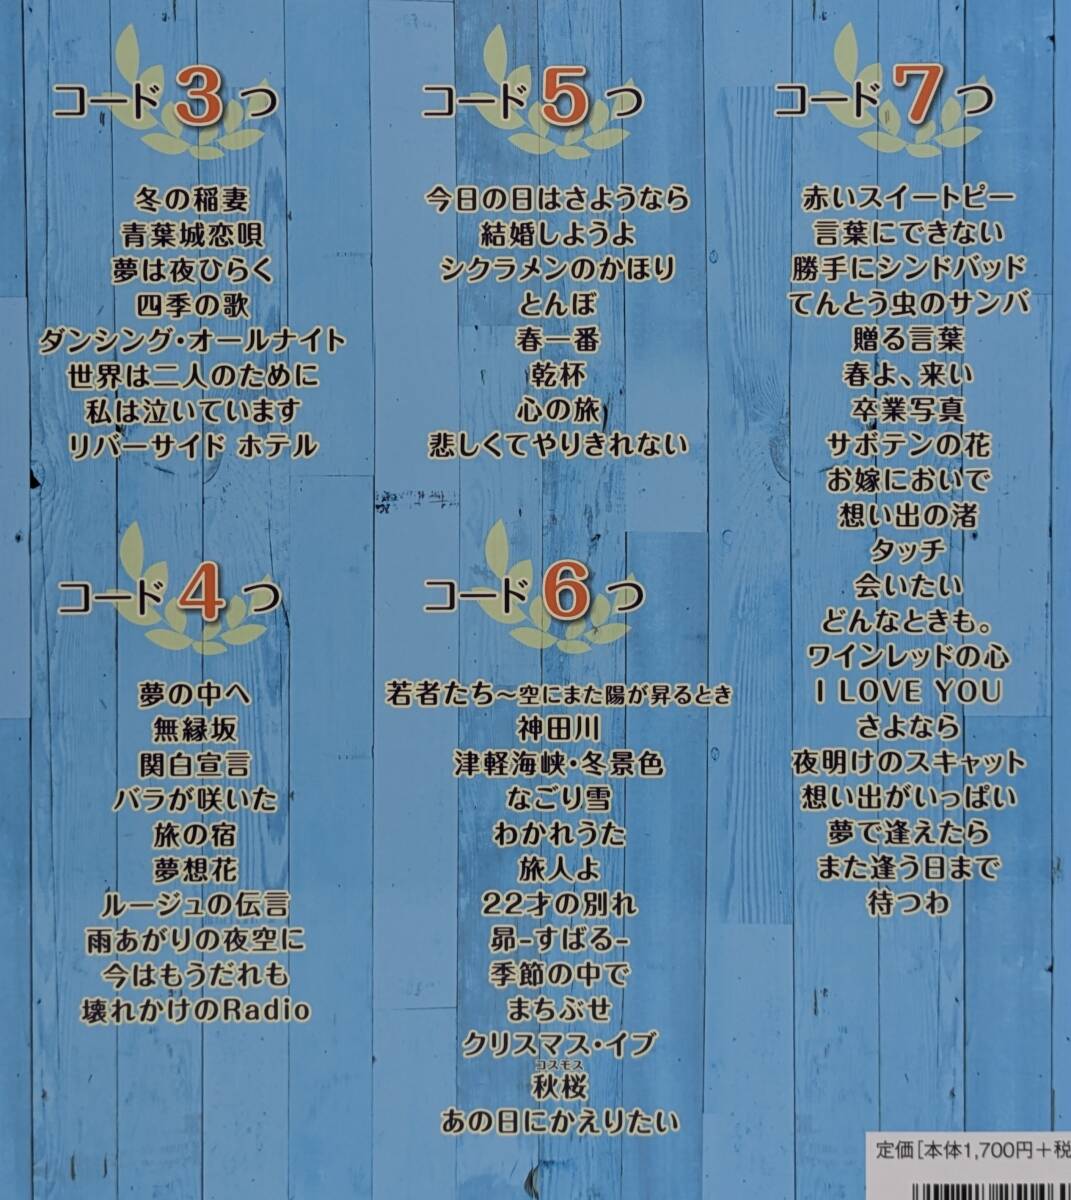 コード3つ
冬の稲妻
青葉城恋唄
夢は夜ひらく
四季の歌
ダンシング・オールナイト
世界は二人のために
私は泣いています
リバーサイド ホテル
コード4つ
夢の中へ
無縁坂
関白宣言
バラが咲いた
旅の宿
夢想花
ルージュの伝言
雨あがりの夜空に
今はもうだれも
壊れかけのRadio
コード5つ
今日の日はさようなら
結婚しようよ
シクラメンのかほり
とんぼ
春一番
乾杯
心の旅
悲しくてやりきれない
コード6つ
若者たち〜空にまた陽が昇るとき
神田川
津軽海峡・冬景色
なごり雪
わかれうた
旅人よ
22才の別れ
昴-すばる-
季節の中で
まちぶせ
クリスマス・イブ
コスモス
秋桜
あの日にかえりたい
コード7つ
赤いスイートピー
言葉にできない
勝手にシンドバッド
てんとう虫のサンバ
贈る言葉
春よ、来い
卒業写真
サボテンの花
お嫁においで
想い出の渚
タッチ
会いたい
どんなときも。
ワインレッドの心
I LOVE YOU
さよなら
夜明けのスキャット
想い出がいっぱい
夢で逢えたら
また逢う日まで
待つわ
定価[本体1,700円+税